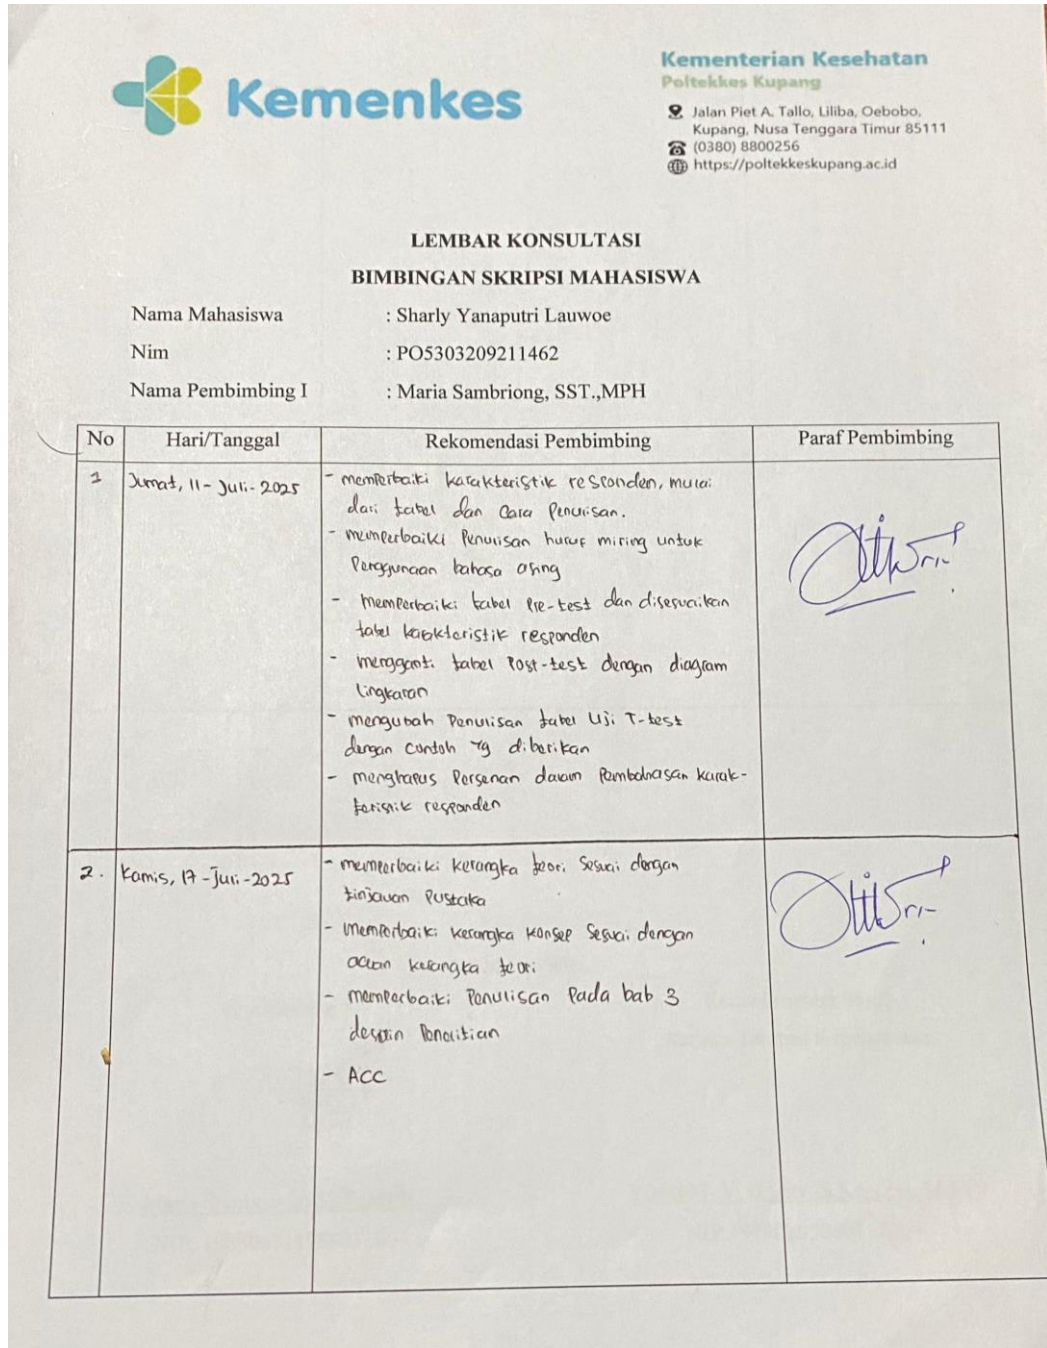 Kemenkes
Kementerian Kesehatan
Poltekkes Kupang
Jalan Piet A. Tallo, Liliba, Oebobo,
Kupang, Nusa Tenggara Timur 85111
(0380) 8800256
https://poltekkeskupang.ac.id
LEMBAR KONSULTASI
BIMBINGAN SKRIPSI MAHASISWA
Nama Mahasiswa : Sharly Yanaputri Lauwoe
Nim : PO5303209211462
Nama Pembimbing I : Maria Sambriong, SST.,MPH
No Hari/Tanggal Rekomendasi Pembimbing Paraf Pembimbing
1 Jumat, 11-Juli-2025 - memperbaiki karakteristik responden, mulai
dari tabel dan cara Penulisan.
- memperbaiki Penulisan huruf miring untuk
Penggunaan bahasa asing
- memperbaiki tabel Pre-test dan disesuaikan
tabel karakteristik responden
- mengganti tabel Post-test dengan diagram
lingkaran
- mengubah Penulisan tabel Uji T-test
dengan contoh yg diberikan
- menghapus Persenan dalam Pembahasan karak-
teristik responden
2. Kamis, 17-Juli-2025 - memperbaiki kerangka teori sesuai dengan
tinjauan Pustaka
- memperbaiki kerangka konsep sesuai dengan
acuan kerangka teori
- memperbaiki Penulisan Pada bab 3
desain Penelitian
- ACC